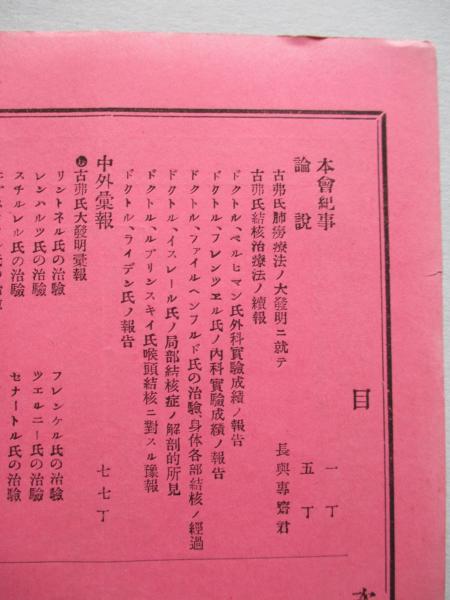 目
本會紀事 一丁
論說 五丁
古弗氏肺癆療法ノ大發明ニ就テ 長與專齋君
古弗氏結核治療法ノ續報
ドクトル、ベルヒマン氏外科實驗成績ノ報告
ドクトル、フレンツエル氏ノ內科實驗成績ノ報告
ドクトル、ファイルヘンフルド氏の治驗、身体各部結核ノ經過
ドクトル、イスレール氏ノ局部結核症ノ解剖的所見
ドクトル、ルブリンスキイ氏喉頭結核ニ對スル豫報
ドクトル、ライデン氏ノ報告
中外彙報 七七丁
古弗氏大發明彙報
リントネル氏の治驗 フレンケル氏の治驗
レンハルツ氏の治驗 ツエルニー氏の治驗
スチルレル氏の治驗 セナートル氏の治驗